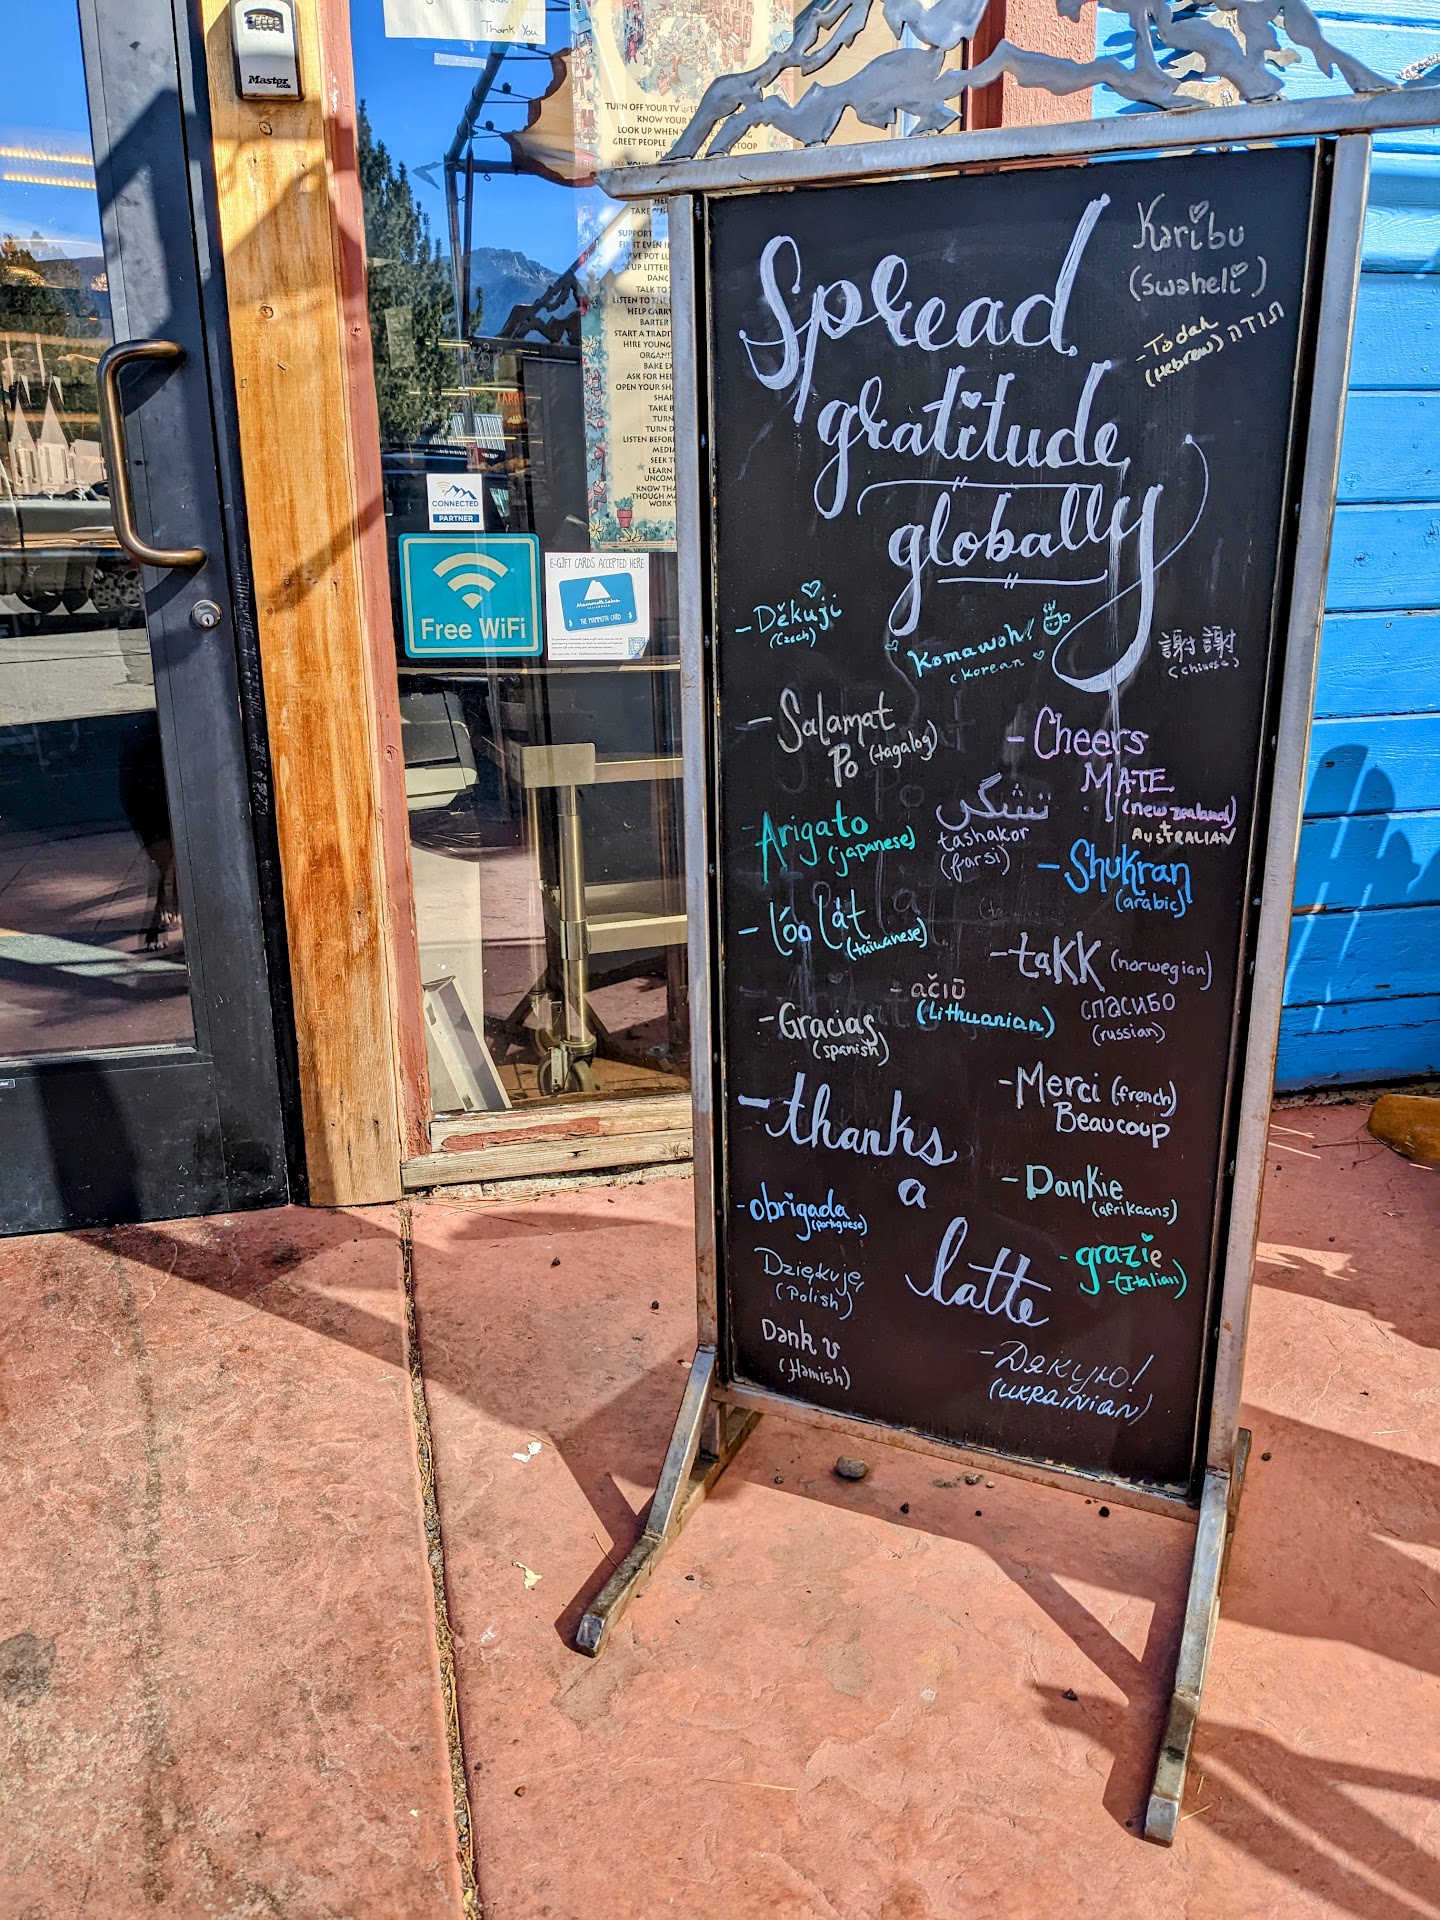 Thank You
Master
Lock
TURN OFF YOUR TV
KNOW YOUR
LOOK UP WHEN
GREET PEOPLE
STOOP
TAKE
SUPPORT
FIX IT EVEN
PICK UP LITTER
TALK TO
LISTEN TO THE
HELP CARRY
BARTER
HIRE YOUNG
BAKE
ASK FOR HELP
OPEN YOUR
TAKE
TURN
TURN
LISTEN BEFORE
SEEK
LEARN
KNOW
THOUGH
WORK
CONNECTED
PARTNER
Free WiFi
E-GIFT CARDS ACCEPTED HERE
Mammoth Lakes
CALIFORNIA
$ THE MAMMOTH CARD $
Spread
gratitude
globally
Karibu
(swaheli)
- Todah
(Hebrew) תודה
- Děkuji
(Czech)
Komawoh!
(korean
謝謝
(chinese)
- Salamat
Po (tagalog)
- Cheers
MATE
(new zealand)
+
AUSTRALIAN
- Arigato
(japanese)
تشکر
tashakor
(farsi)
- Shukran
(arabic)
- lóo lát
(taiwanese)
- takk (norwegian)
- ačiū
(Lithuanian)
спасибо
(russian)
- Gracias
(spanish)
- Merci (french)
Beaucoup
- thanks
a
latte
- Dankie
(afrikaans)
- obrigada
(portuguese)
- grazie
- (Italian)
Dziękuję
(Polish)
Dank u
(flamish)
- Дякую!
(UKRAINIAN)